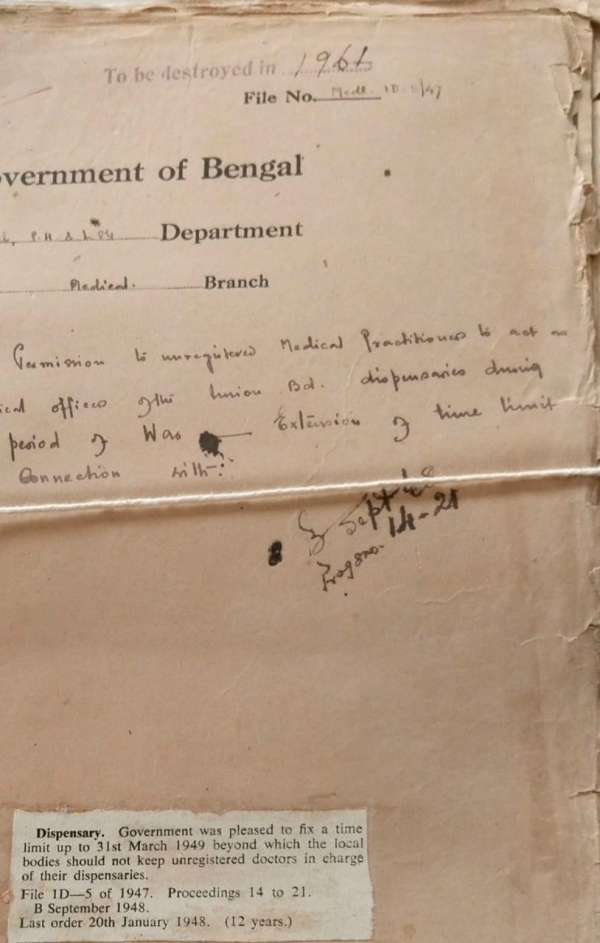 To be destroyed in 1961
File No. Medl. 1D-5/47
vernment of Bengal
P.H & L.S.G Department
Medical. Branch
Permission to unregistered Medical Practitioners to act as
ical officers of the Union Bd. dispensaries during
period of War — Extension of time limit
Connection with.
B Sept 48
Progs no. 14-21
Dispensary. Government was pleased to fix a time
limit up to 31st March 1949 beyond which the local
bodies should not keep unregistered doctors in charge
of their dispensaries.
File 1D—5 of 1947. Proceedings 14 to 21.
B September 1948.
Last order 20th January 1948. (12 years.)